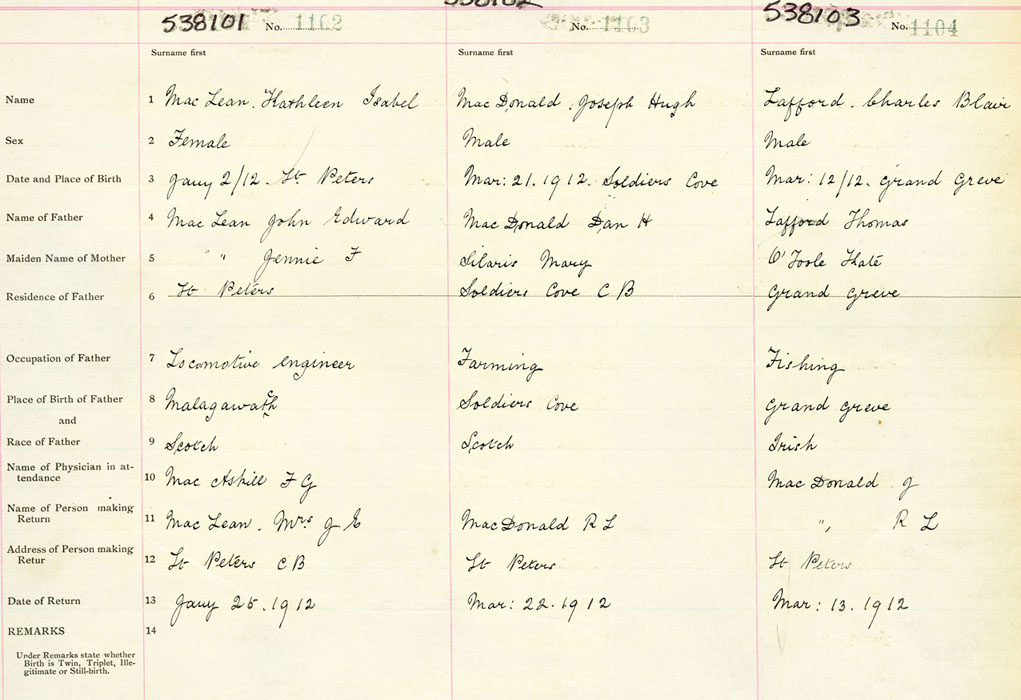 538101 No. 1102 No. 1103 538103 No. 1104
Surname first Surname first Surname first
Name 1 Mac Lean. Kathleen Isabel Mac Donald. Joseph Hugh Lafford. Charles Blair
Sex 2 Female Male Male
Date and Place of Birth 3 Jany 2/12. St. Peters Mar: 21. 1912. Soldiers Cove Mar: 12/12. Grand Greve
Name of Father 4 Mac Lean John Edward Mac Donald Dan H Lafford Thomas
Maiden Name of Mother 5 " " Jennie F Mary O'Toole Kate
Residence of Father 6 St Peters Soldiers Cove C B Grand Greve
Occupation of Father 7 Locomotive engineer Farming Fishing
Place of Birth of Father 8 Malagawatch Soldiers Cove Grand Greve
and
Race of Father 9 Scotch Scotch Irish
Name of Physician in at-
tendance 10 Mac Askill F G Mac Donald J
Name of Person making
Return 11 Mac Lean. Mrs J E MacDonald R L " R L
Address of Person making
Retur 12 St Peters C B St Peters St Peters
Date of Return 13 Jany 25. 1912 Mar: 22. 1912 Mar: 13. 1912
REMARKS 14
Under Remarks state whether
Birth is Twin, Triplet, Ille-
gitimate or Still-birth.